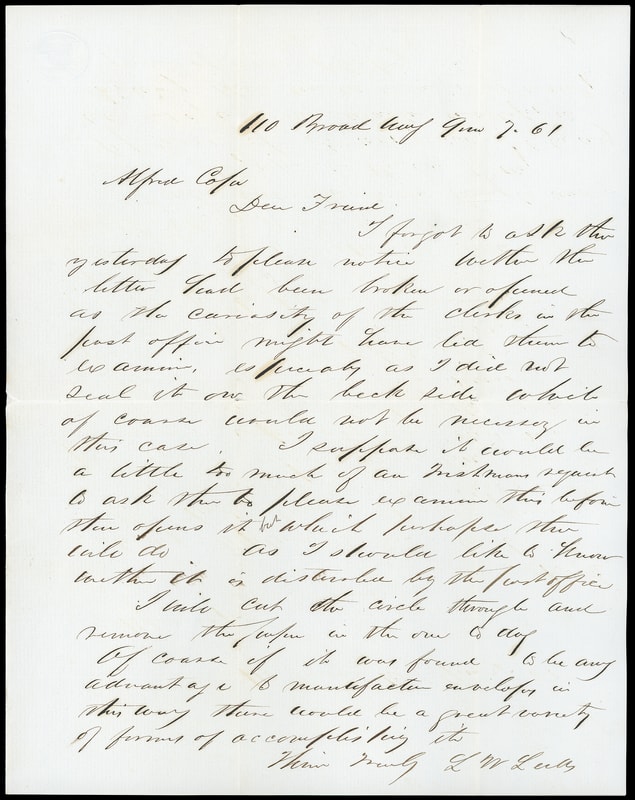 110 Broad Way Jan 7. 61
Alfred Cope
Dear Friend.
I forgot to ask thee
yesterday to please notice wether the
letter had been broken or opened
as the curiosity of the clerks in the
post office might have led them to
examine, especialy as I did not
seal it on the back side which
of coarse would not be necessary in
this case. I suppose it would be
a little too much of an Irishmans request
to ask thee to please examine this before
thee opens it but which perhapse thee
will do as I should like to know
wether it is disturbed by the post office
I will cut the circle through and
remove the paper in the one to day
Of coarse if it was found to be any
advantage to manufacture envelopes in
this way there would be a great variety
of forms of accomplishing it
Thine Truly L W Leeds